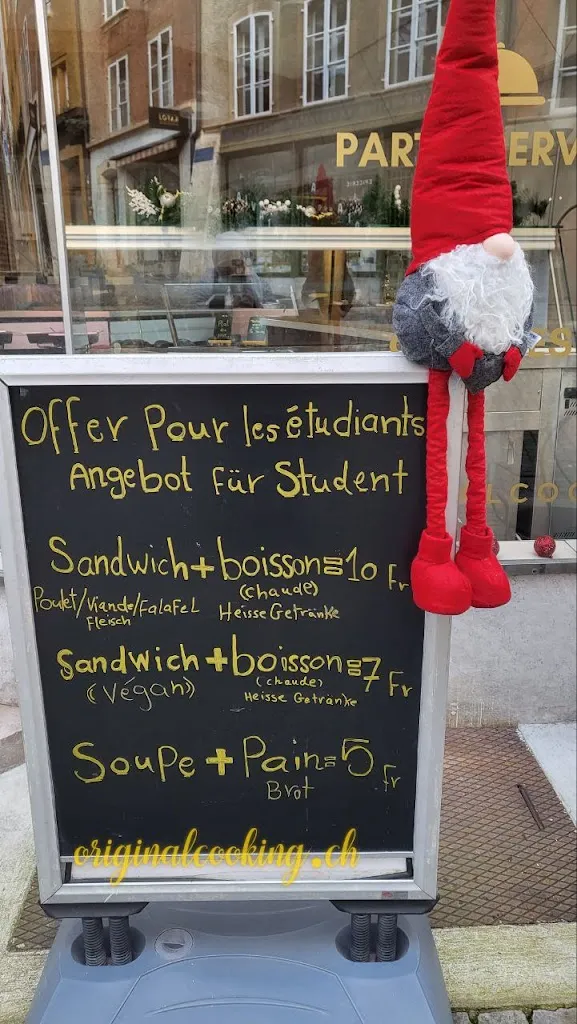 PART
ERV
Offer Pour les étudiants
Angebot für Student
Sandwich + boisson = 10 Fr
(chaude)
Poulet/Viande/Falafel Heisse Getränke
Fleisch
Sandwich + boisson = 7 Fr
(Végan) (chaude)
Heisse Getränke
Soupe + Pain = 5 Fr
Brot
originalcooking.ch